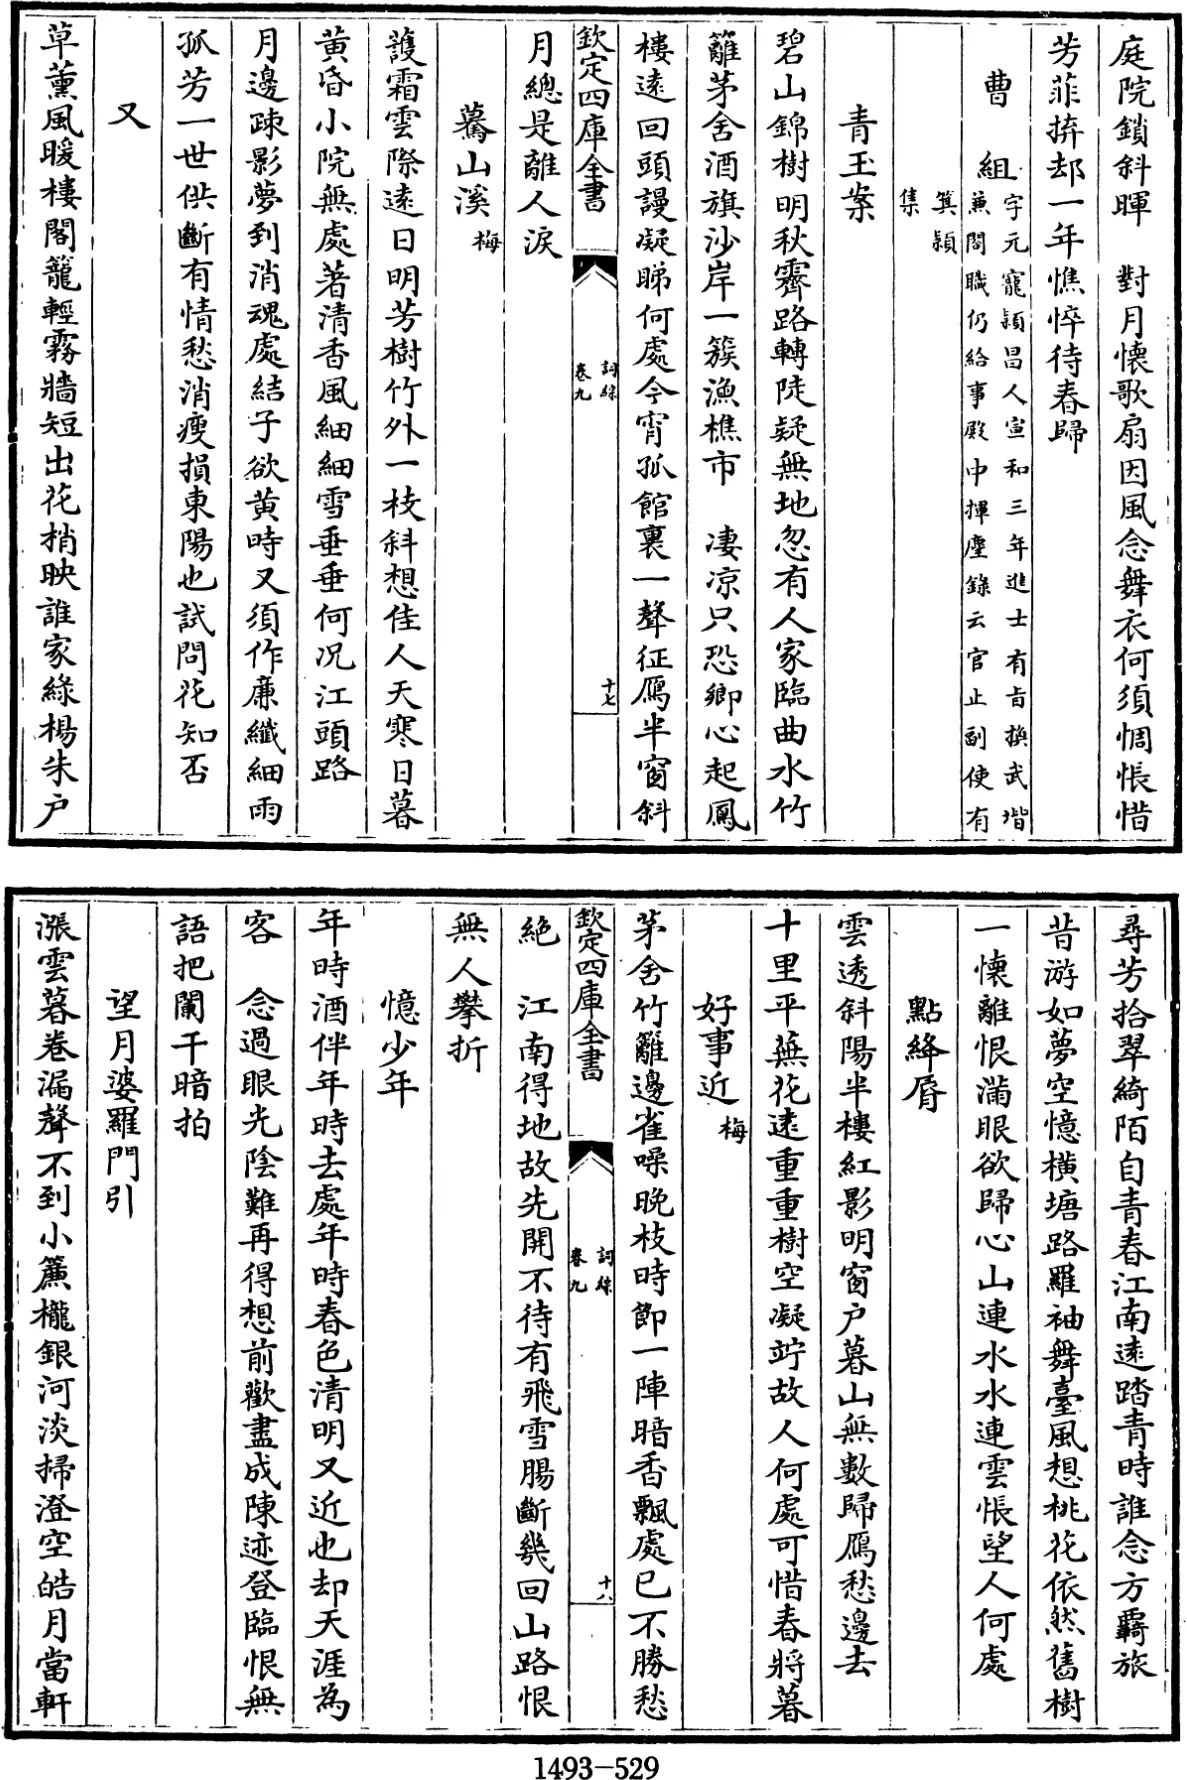 庭院鎖斜暉　對月懷歌扇因風念舞衣何須惆悵惜
芳菲拚却一年憔悴待春歸
曹　組字元寵潁昌人宣和三年進士有旨換武堦
兼閤職仍給事殿中揮麈錄云官止副使有
箕潁
集
青玉案
碧山錦樹明秋霽路轉陡疑無地忽有人家臨曲水竹
籬茅舍酒旗沙岸一簇漁樵市　凄凉只恐鄉心起鳳
樓遠回頭謾凝睇何處今宵孤館裏一聲征鴈半窗斜
欽定四庫全書
詞綜
卷九
十七
月總是離人淚
驀山溪梅
護霜雲際遠日明芳樹竹外一枝斜想佳人天寒日暮
黃昏小院無處著清香風細細雪垂垂何况江頭路
月邊疎影夢到消魂處結子欲黃時又須作廉纖細雨
孤芳一世供斷有情愁消瘦損東陽也試問花知否
又
草薰風暖樓閣籠輕霧牆短出花梢映誰家綠楊朱戶
尋芳拾翠綺陌自青春江南遠踏青時誰念方羇旅
昔游如夢空憶橫塘路羅袖舞臺風想桃花依然舊樹
一懷離恨滿眼欲歸心山連水水連雲悵望人何處
點絳脣
雲透斜陽半樓紅影明窗戶暮山無數歸鴈愁邊去
十里平蕪花遠重重樹空凝竚故人何處可惜春將暮
好事近梅
茅舍竹籬邊雀噪晚枝時節一陣暗香飄處已不勝愁
欽定四庫全書
詞綜
卷九
十八
絶　江南得地故先開不待有飛雪腸斷幾回山路恨
無人攀折
憶少年
年時酒伴年時去處年時春色清明又近也却天涯為
客　念過眼光陰難再得想前歡盡成陳迹登臨恨無
語把闌干暗拍
望月婆羅門引
漲雲暮卷漏聲不到小簾櫳銀河淡掃澄空皓月當軒
1493-529